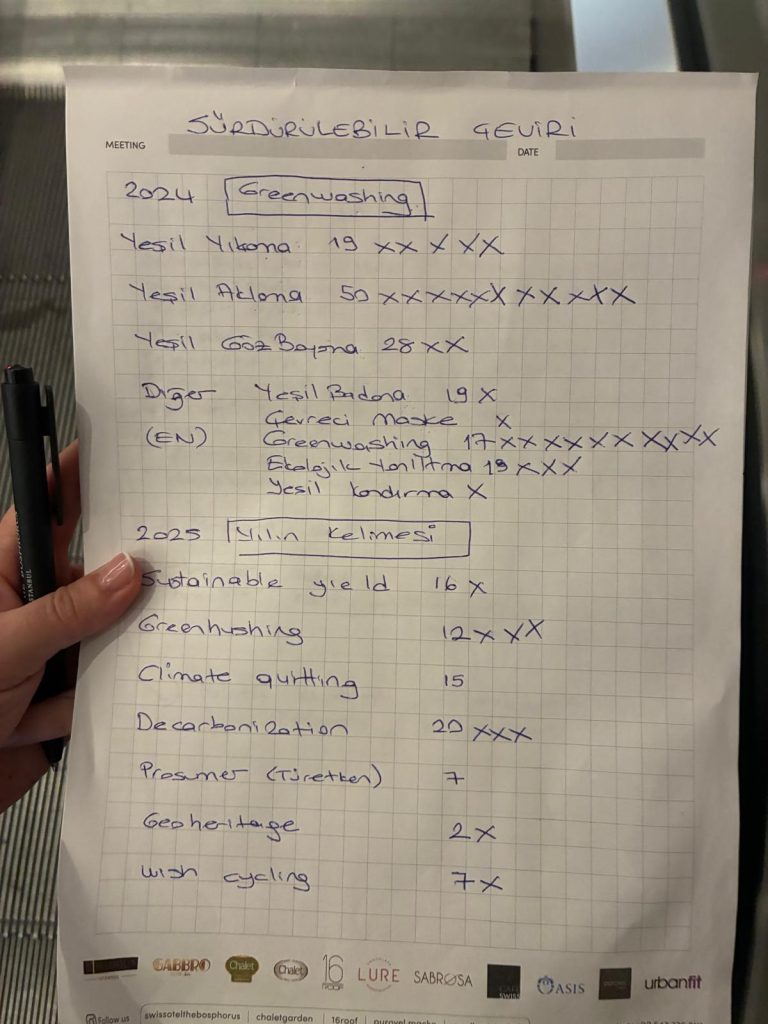 SÜRDÜRÜLEBİLİR ÇEVİRİ
MEETING
DATE
2024 Greenwashing
Yeşil Yıkama 19 xx x xx
Yeşil Aklama 50 xxxxxx xx xxx
Yeşil Göz Boyama 28 xx
Diğer Yeşil Badana 19 x
Çevreci Maske x
(EN) Greenwashing 17 xx xx x x xx xx
Ekolojik Yanıltma 19 xxx
Yeşil kandırma x
2025 Yılın Kelimesi
Sustainable yield 16 x
Greenhushing 12 x xx
Climate quitting 15
Decarbonization 20 xxx
Prosumer (Türetken) 7
Geoheritage 2x
wish cycling 7x
GABBRO Chalet Chalet 16 ROOF LURE SABROSA CAFE SWISS OASIS urbanfit
Follow us swissotelthebosphorus chaletgarden 16roof
ISTANBUL